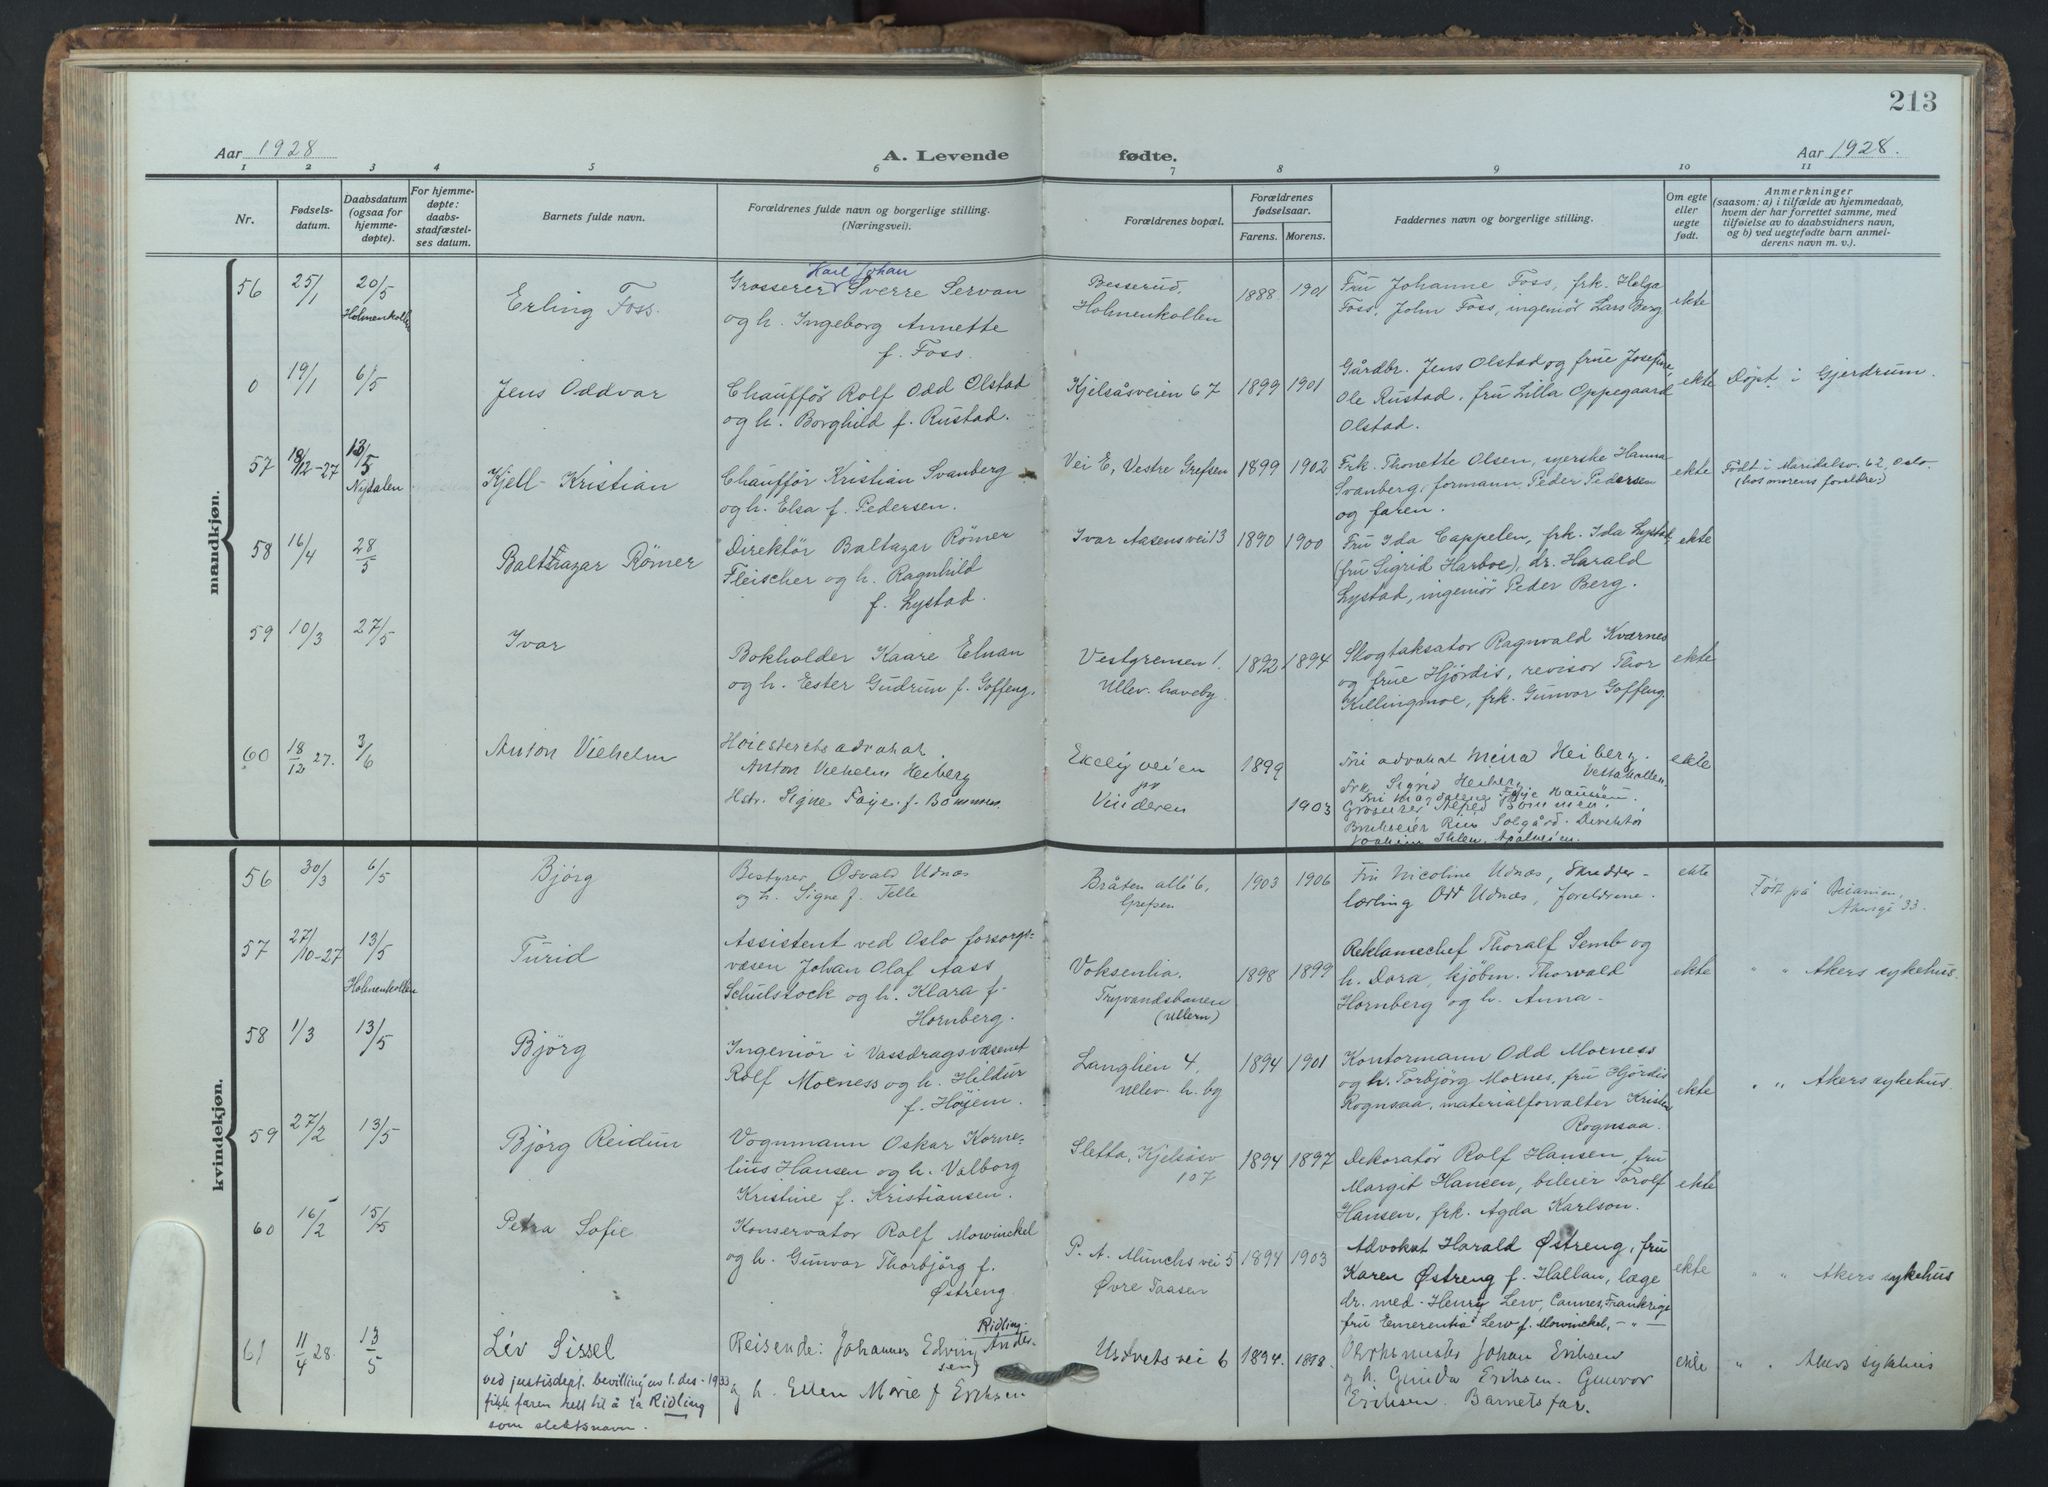 213
Aar 1928
A. Levende fødte.
Aar 1928.
1 2 3 4 5 6 7 8 9 10 11
Nr.
Fødsels-
datum.
Daabsdatum
(ogsaa for
hjemme-
døpte).
For hjemme-
døpte:
daabs-
stadfæstel-
ses datum.
Barnets fulde navn.
Forældrenes fulde navn og borgerlige stilling.
(Næringsvei).
Forældrenes bopæl.
Forældrenes
fødselsaar.
Farens. Morens.
Faddernes navn og borgerlige stilling.
Om egte
eller
uegte
født.
Anmerkninger
(saasom: a) i tilfælde av hjemmedaab,
hvem der har forrettet samme, med
tilføielse av to daabsvidners navn,
og b) ved uegtefødte barn anmel-
derens navn m. v.).
mandkjøn.
56 25/1 20/5
Holmenkollen
Erling Foss.
Karl Johan
Grosserer Sverre Servan
og h. Ingeborg Annette
f. Foss.
Besserud,
Holmenkollen
1888 1901
Fru Johanne Foss, frk. Helga
Foss, John Foss, ingeniør Lars Berg
ekte
0 19/1 6/5
Jens Oddvar
Chauffør Rolf Odd Olstad
og h. Borghild f. Rustad.
Kjelsåsveien 67
1899 1901
Gårdbr. Jens Olstad og frue Josefine,
Ole Rustad, fru Lilla Oppegaard
Olstad.
ekte
Døpt i Gjerdrum.
57 19/12-27 13/5
Nydalen
Kjell-Kristian
Chauffør Kristian Svanberg
og h. Elsa f. Pedersen.
Vei E, Vestre Grefsen
1899 1902
Frk. Thonette Olsen, syerske Hanna
Svanberg, formann Peder Pedersen
og faren.
ekte
Født i Maridalsv. 62, Oslo.
(hos morens foreldre.)
58 16/4 28/5
Balthazar Rømer
Direktør Baltazar Rømer
Fleischer og h. Ragnhild
f. Lystad.
Ivar Aasens vei 13
1890 1900
Fru Ida Cappelen, frk. Ida Lystad,
(fru Sigrid Harboe), dr. Harald
Lystad, ingeniør Peder Berg.
ekte
59 10/3 27/5
Ivar
Bokholder Kaare Elnan
og h. Ester Gudrun f. Goffeng.
Vestgrensen 1.
Ullev. haveby.
1892 1894
Skogtaksator Ragnvald Kværnes
og frue Hjørdis, revisor Thor
Killingmoe, frk. Gunvor Goffeng.
ekte
60 18/12 27. 3/6
Anton Vilhelm
Høiesteretsadvokat
Anton Vilhelm Heiberg
Hstr. Signe Faye f. Bommen.
Ekely veien
pr
Vinderen
1899
1903
Fru advokat Meina Heiberg.
Vettakollen.
Frk. Sigrid Heiberg
Fru Magdalene Faye Hanssen.
Grosserer Alfred Bommen.
Brukseier Riis Solgård. Direktør
Joakim Ihlen,
ekte
kvindekjøn.
56 30/3 6/5
Bjørg
Bestyrer Osvald Udnæs
og h. Signe f. Telle
Bråten allé 6,
Grefsen
1903 1906
Fru Nicoline Udnæs, skredder-
lærling Odd Udnæs, foreldrene.
ekte
Født på
Akersgt 33.
57 27/10-27 13/5
Holmenkollen
Turid
Assistent ved Oslo forsorgs-
væsen Johan Olaf Aass
Schulstock og h. Klara f.
Hornberg.
Voksenlia,
Tryvandsbanen
(Ullern)
1898 1899
Reklamechef Thoralf Semb og
h. Dora, kjøbm. Thorvald
Hornberg og h. Anna.
ekte
" " Akers sykehus.
58 1/3 13/5
Bjørg
Ingeniør i Vassdragsvæsenet
Rolf Moxness og h. Hildur
f. Høyem.
Langlien 4,
Ullev. h. by
1894 1901
Kontormann Odd Moxness
og h. Torbjørg Moxnes, fru Hjørdis
Rognsaa, materialforvalter Kristen
Rognsaa.
ekte
" " Akers sykehus.
59 27/2 13/5
Bjørg Reidun
Vognmann Oskar Korne-
lius Hansen og h. Valborg
Kristine f. Kristiansen.
Sletta, Kjelsåsv
107
1894 1897
Dekoratør Rolf Hansen, fru
Margit Hansen, bileier Torolf
Hansen, frk. Agda Karlson.
ekte
60 16/2 15/5
Petra Sofie
Konservator Rolf Mowinckel
og h. Gunvor Thorbjørg f.
Østreng.
P. A. Munchs vei 5
Øvre Taasen
1894 1903
Advokat Harald Østreng, fru
Karen Østreng f. Hallan, læge
dr. med. Henry Lew, Cannes, Frankrig,
fru Emerentia Lew f. Mowinckel, - " -
ekte
" " Akers sykehus
61 11/4 28. 13/5
Liv Sissel
ved justisdept. bevilling av 1. des. 1933
fikk faren rett til å ta Ridling
som slektsnavn.
Ridling.
Reisende: Johannes Edvin Ander-
sen
g h. Ellen Marie f Eriksen
Usdvets vei 6
1894. 1898.
Johan Eriksen
og h. Gunda Eriksen. Gunvor
Eriksen. Barnets far.
ekte
" " Akers sykehus